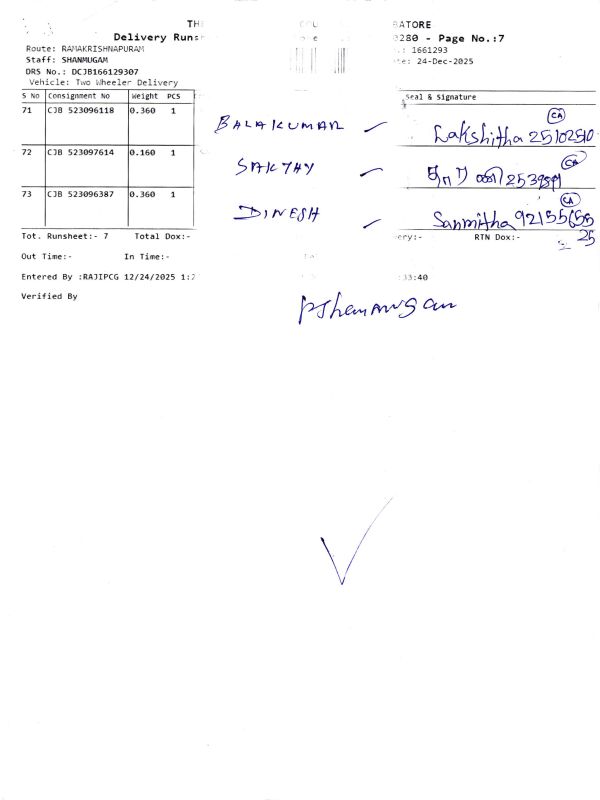 THE COU BATORE
Delivery Runs 0280 - Page No.:7
Route: RAMAKRISHNAPURAM : 1661293
Staff: SHANMUGAM te: 24-Dec-2025
DRS No.: DCJB166129307
Vehicle: Two Wheeler Delivery
S No Consignment No Weight PCS Seal & Signature
71 CJB 523096118 0.360 1 BALAKUMAR CA Lakshitha 25102510
72 CJB 523097614 0.160 1 SAKTHY CA
73 CJB 523096387 0.360 1 DINESH CA Sanmitha 92155655
25
Tot. Runsheet:- 7 Total Dox:- ery:- RTN Dox:-
Out Time:- In Time:-
Entered By :RAJIPCG 12/24/2025 1:2 :33:40
Verified By